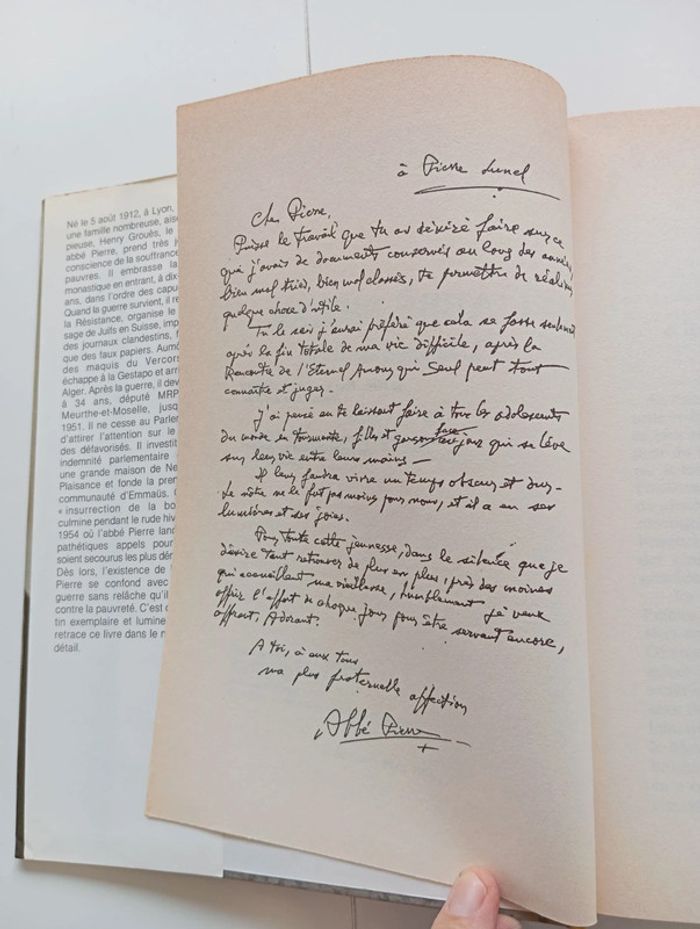 Né le 5 août 1912, à Lyon,
une famille nombreuse, aisé
pieuse, Henry Grouès, le
abbé Pierre, prend très j
conscience de la souffrance
pauvres. Il embrasse la
monastique en entrant, à dix-
ans, dans l'ordre des capu
Quand la guerre survient, il re
la Résistance, organise le
sage de Juifs en Suisse, imp
des journaux clandestins, f
que des faux papiers. Aumô
des maquis du Vercors
échappe à la Gestapo et arr
Alger. Après la guerre, il dev
à 34 ans, député MRP
Meurthe-et-Moselle, jusqu
1951. Il ne cesse au Parle
d'attirer l'attention sur le
des défavorisés. Il investit
indemnité parlementaire
une grande maison de Ne
Plaisance et fonde la pren
communauté d'Emmaüs. C
« insurrection de la bo
culmine pendant le rude hiv
1954 où l'abbé Pierre lanc
pathétiques appels pour
soient secourus les plus dér
Dès lors, l'existence de
Pierre se confond avec
guerre sans relâche qu'il
contre la pauvreté. C'est c
tin exemplaire et lumine
retrace ce livre dans le n
détail.
à Pierre Lunel
Cher Pierre,
Puisse le travail que tu as désiré faire sur ce
que j'avais de documents conservés au long des années,
bien mal triés, bien mal classés, te permettre de réaliser
quelque chose d'utile.
Tu le sais j'aurai préféré que cela se fasse seulement
après la fin totale de ma vie difficile, après la
Rencontre de l'Eternel Amour qui Seul peut tout
connaître et juger.
J'ai pensé en te laissant faire à tous les adolescents
du monde en tourmente, filles et garçons face au jour qui se lève
sur leur vie entre leurs mains —
Il leur faudra vivre un temps obscur et dur —
Le nôtre ne le fut pas moins pour nous, et il a eu ses
lumières et ses joies.
Pour toute cette jeunesse, dans le silence que je
désire tant retrouver de plus en plus, près des moines
qui accueillent ma vieillesse, humblement je veux
offrir l'effort de chaque jour pour être servant encore,
offrant, Adorant.
A toi, à eux tous
ma plus fraternelle affection
Abbé Pierre